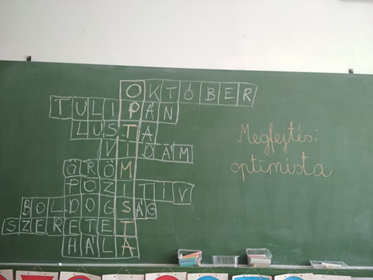 OKTÓBER
TULIPÁN
LUSTA
VIDÁM
ÖRÖM
POZITÍV
BOLDOGSÁG
SZERETET
HÁLA
Megfejtés:
optimista